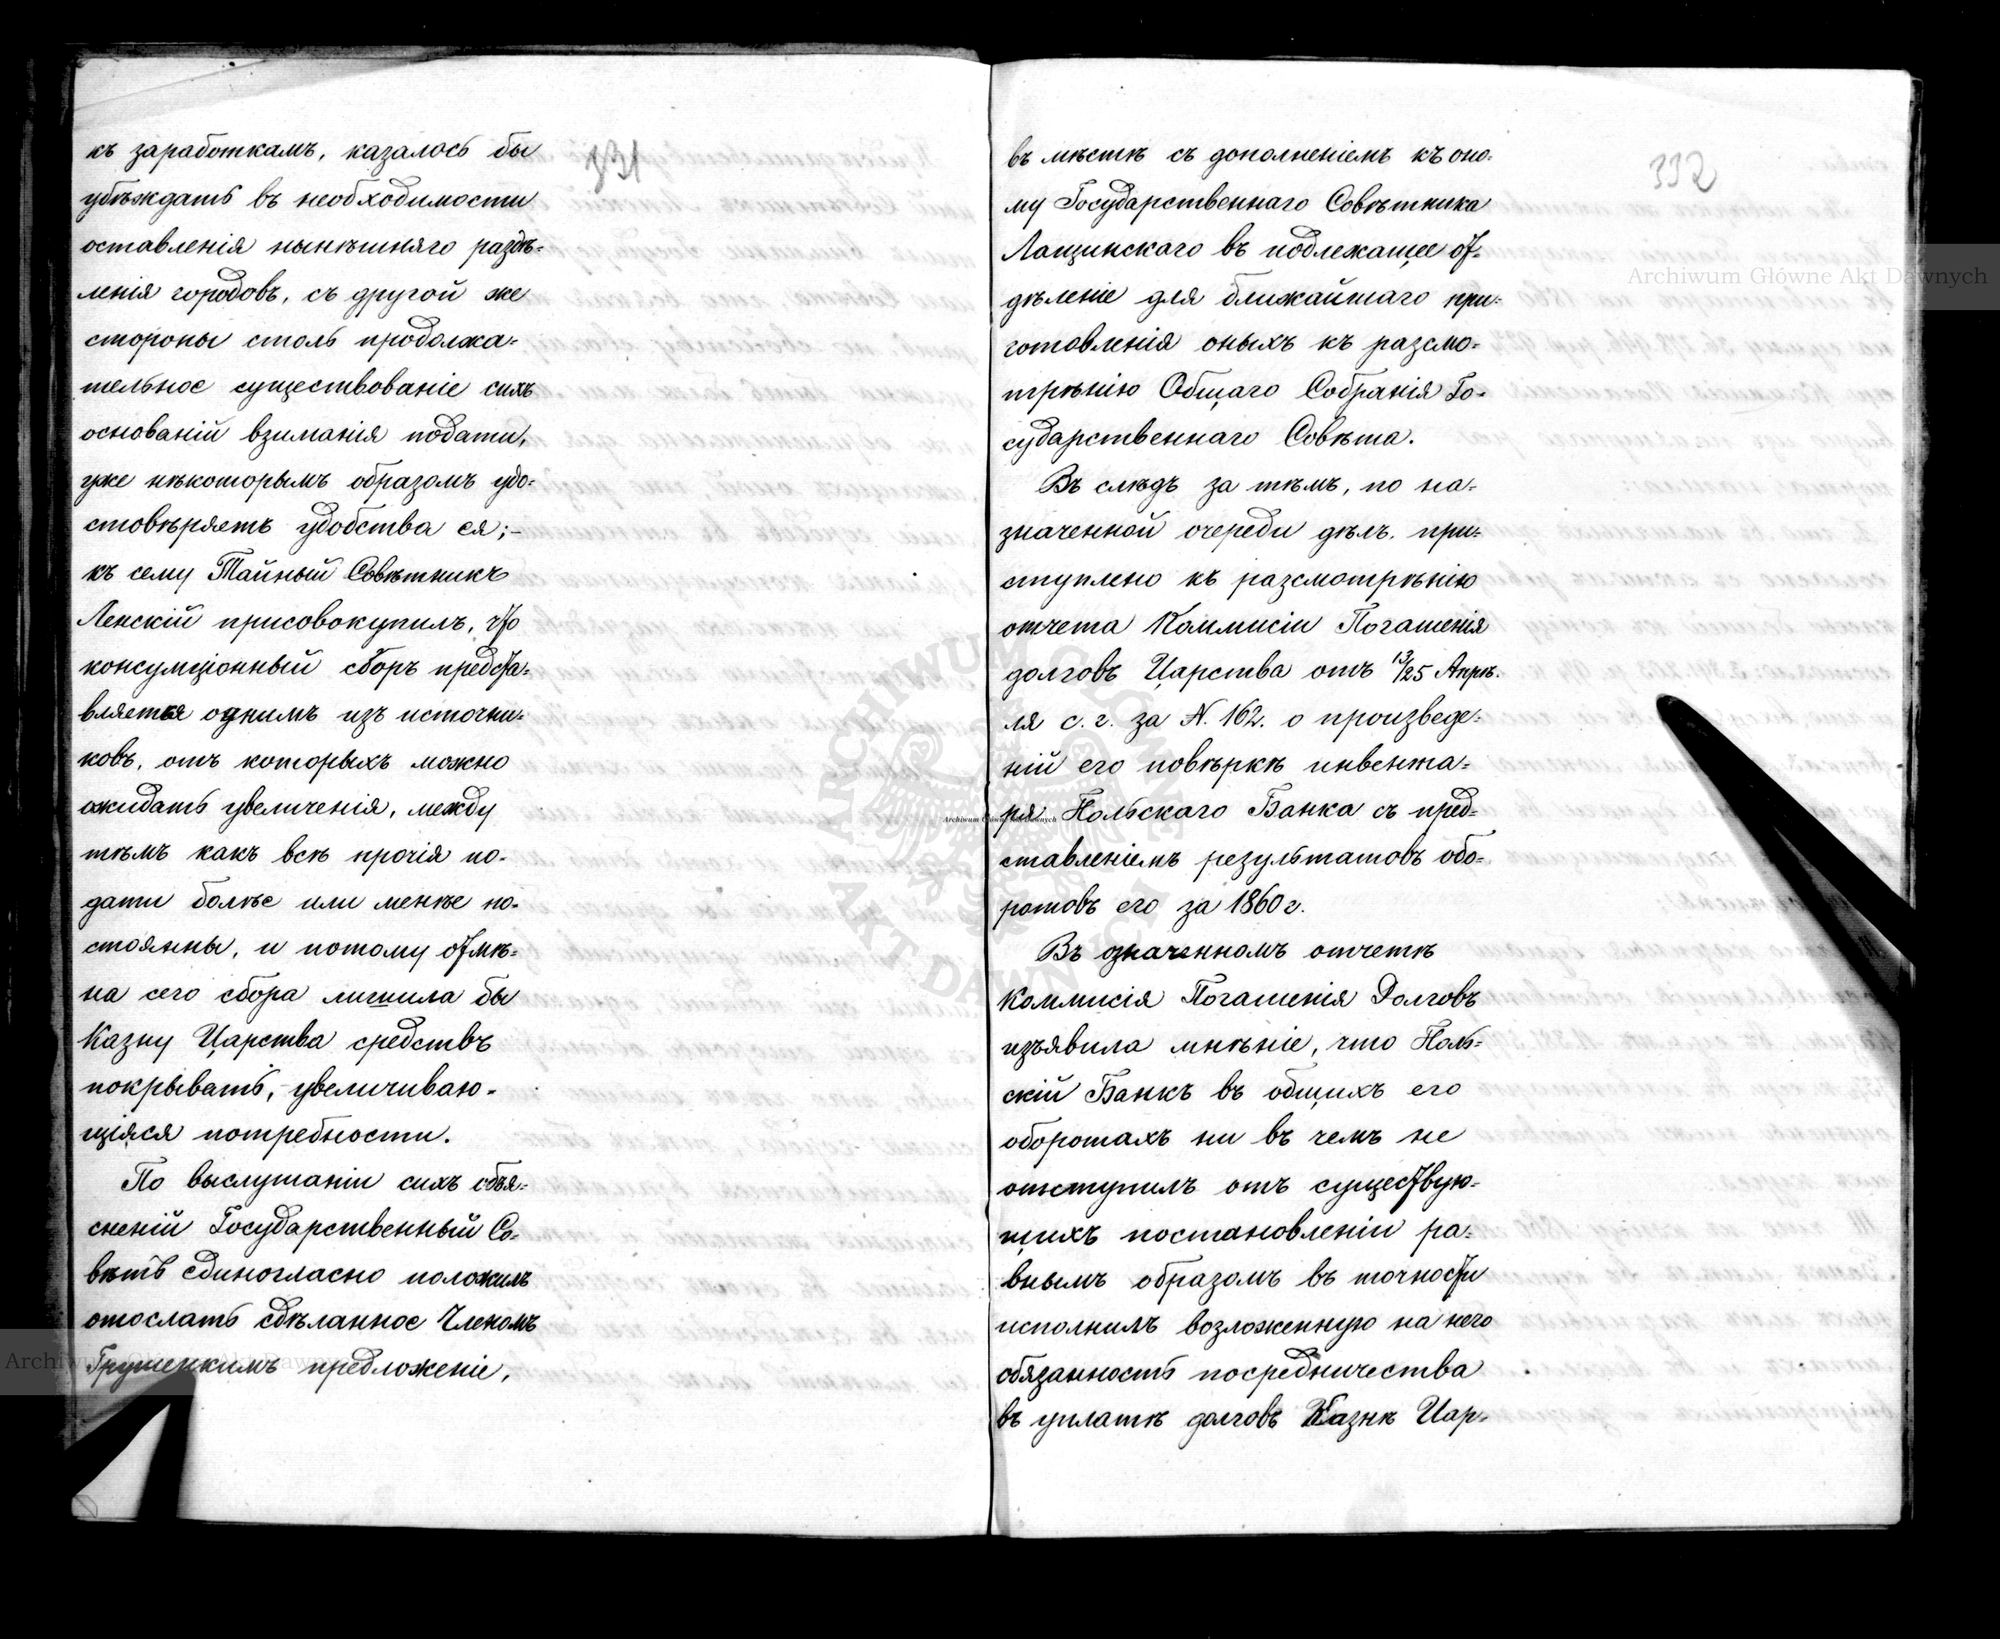 331
къ заработкамъ, казалось бы
убѣждать въ необходимости
оставленія нынѣшняго раздѣ-
ленія городовъ, съ другой же
стороны столь продолжа-
тельное существованіе сихъ
основаній взиманія подати,
уже нѣкоторымъ образомъ удо-
стовѣряетъ удобства ея;-
къ сему Тайный Совѣтникъ
Ленскій присовокупилъ, что
консумціонный сборъ предста-
вляется однимъ изъ источни-
ковъ, отъ которыхъ можно
ожидать увеличенія, между
тѣмъ какъ всѣ прочія по-
дати болѣе или менѣе по-
стоянны, и потому отмѣ-
на сего сбора лишила бы
Казну Царства средствъ
покрывать, увеличиваю-
щіяся потребности.
По выслушаніи сихъ объя-
сненій Государственный Со-
вѣтъ единогласно положилъ
отослать сдѣланное Членомъ
предложеніе,
332
въ мѣстѣ съ дополненіемъ къ оно-
му Государственнаго Совѣтника
Лащинскаго въ подлежащее от-
дѣленіе для ближайшаго при-
готовленія оныхъ къ разсмо-
трѣнію Общаго Собранія Го-
сударственнаго Совѣта.
Въ слѣдъ за тѣмъ, по на-
значенной очереди дѣлъ, при-
ступлено къ разсмотрѣнію
отчета Коммисіи Погашенія
долговъ Царства отъ 13/25 Апрѣ-
ля с. г. за N. 162. о произведе-
ній его повѣркѣ инвента-
ря Польскаго Банка съ пред-
ставленіемъ результатовъ обо-
ротовъ его за 1860 г.
Въ означенномъ отчетѣ
Коммисія Погашенія Долговъ
изъявила мнѣніе, что Поль-
скій Банкъ въ общихъ его
оборотахъ ни въ чемъ не
отступилъ отъ существую-
щихъ постановленіи ра-
внымъ образомъ въ точности
исполнилъ возложенную на него
обязанность посредничества
въ уплатѣ долговъ Казнѣ Цар-
Archiwum Główne Akt Dawnych
Archiwum Główne Akt Dawnych
ARCHIWUM GŁÓWNE AKT DAWNYCH